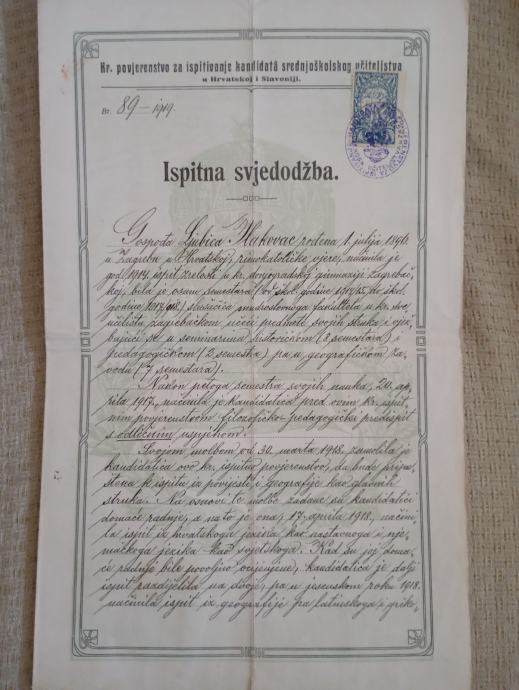 Kr. povjerenstvo za ispitivanje kandidata srednjoškolskog učiteljstva
u Hrvatskoj i Slavoniji.
Br. 89 – 1919.
Ispitna svjedodžba.
Gospođa Ljubica Hakovac rođena 1. julija 1896.
u Zagrebu u Hrvatskoj, rimokatoličke vjere, načinila je
god. 1914. ispit zrelosti u kr. donjogradskoj gimnaziji zagrebač-
koj, bila je osam semestara (od škol. godine 1914/15. do škol.
godine 1917/18.) slušačica mudroslovnog fakulteta u kr. sve-
učilištu zagrebačkom učeći predmete svojih struka i vjež-
bajući se u seminarima historičkom (8 semestara) i
pedagogičkom (2 semestra), pa u geografičkom za-
vodu (7 semestara).
Nakon petoga semestra svojih nauka, 20. ap-
rila 1917., načinila je kandidatica pred ovim kr. ispit-
nim povjerenstvom filozofičko-pedagogički predispit
s odličnim uspjehom.
Svojom molbom od 30. marta 1918. zamolila je
kandidatica ovo kr. ispitno povjerenstvo, da bude pripu-
štena k ispitu iz povjesti i geografije kao glavnih
struka. Na osnovi te molbe zadane su kandidatici
domaće radnje, a na to je ona, 17. aprila 1918., načini-
la ispit iz hrvatskoga jezika kao nastavnoga i nje-
mačkoga jezika kao svjetskoga. Kad su joj doma-
će radnje bile povoljno ocijenjene, kandidatica je dalji
ispit razdijelila na dvoje, pa u jesenskom roku 1918.
načinila ispit iz geografije pa latinskoga i grčko-